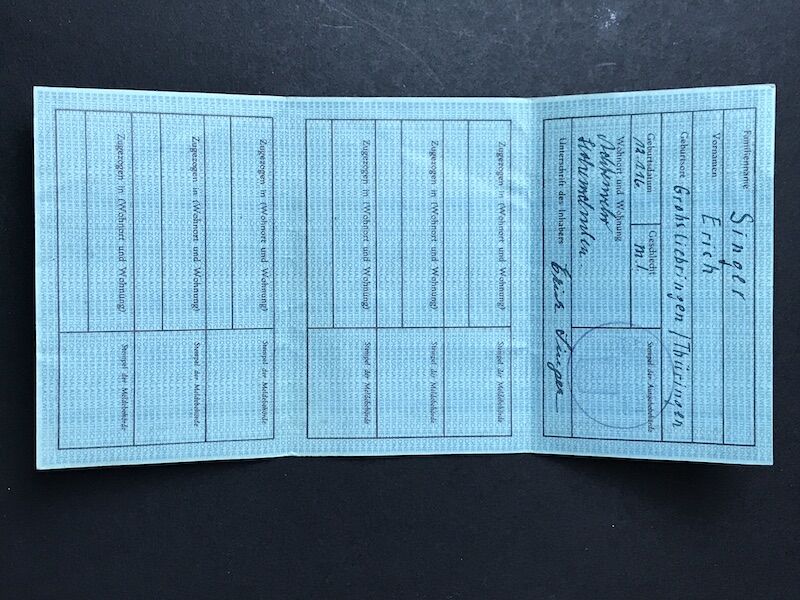 Familienname
Singer
Vornamen
Erich
Geburtsort
Großliebringen / Thüringen
Geburtsdatum
Geschlecht
ml.
Wohnort und Wohnung
Stempel der Ausgabebehörde
Unterschrift des Inhabers
Erich Singer
Zugezogen in (Wohnort und Wohnung)
Stempel der Meldebehörde
Zugezogen in (Wohnort und Wohnung)
Stempel der Meldebehörde
Zugezogen in (Wohnort und Wohnung)
Stempel der Meldebehörde
Zugezogen in (Wohnort und Wohnung)
Stempel der Meldebehörde
Zugezogen in (Wohnort und Wohnung)
Stempel der Meldebehörde
Zugezogen in (Wohnort und Wohnung)
Stempel der Meldebehörde